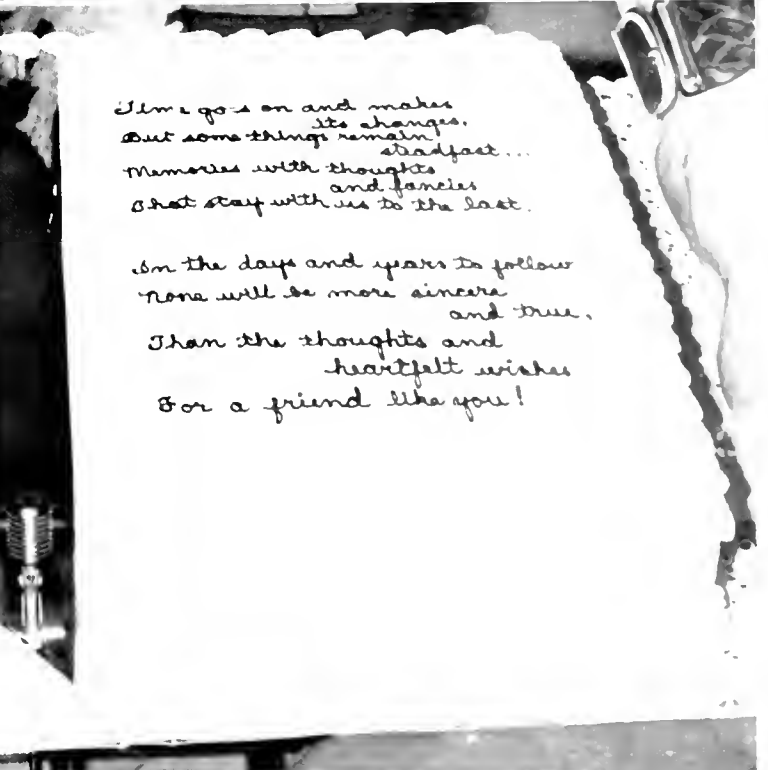 Time goes on and makes
its changes.
But some things remain
steadfast...
Memories with thoughts
and fancies
That stay with us to the last.
In the days and years to follow
None will be more sincere
and true.
Than the thoughts and
heartfelt wishes
For a friend like you!